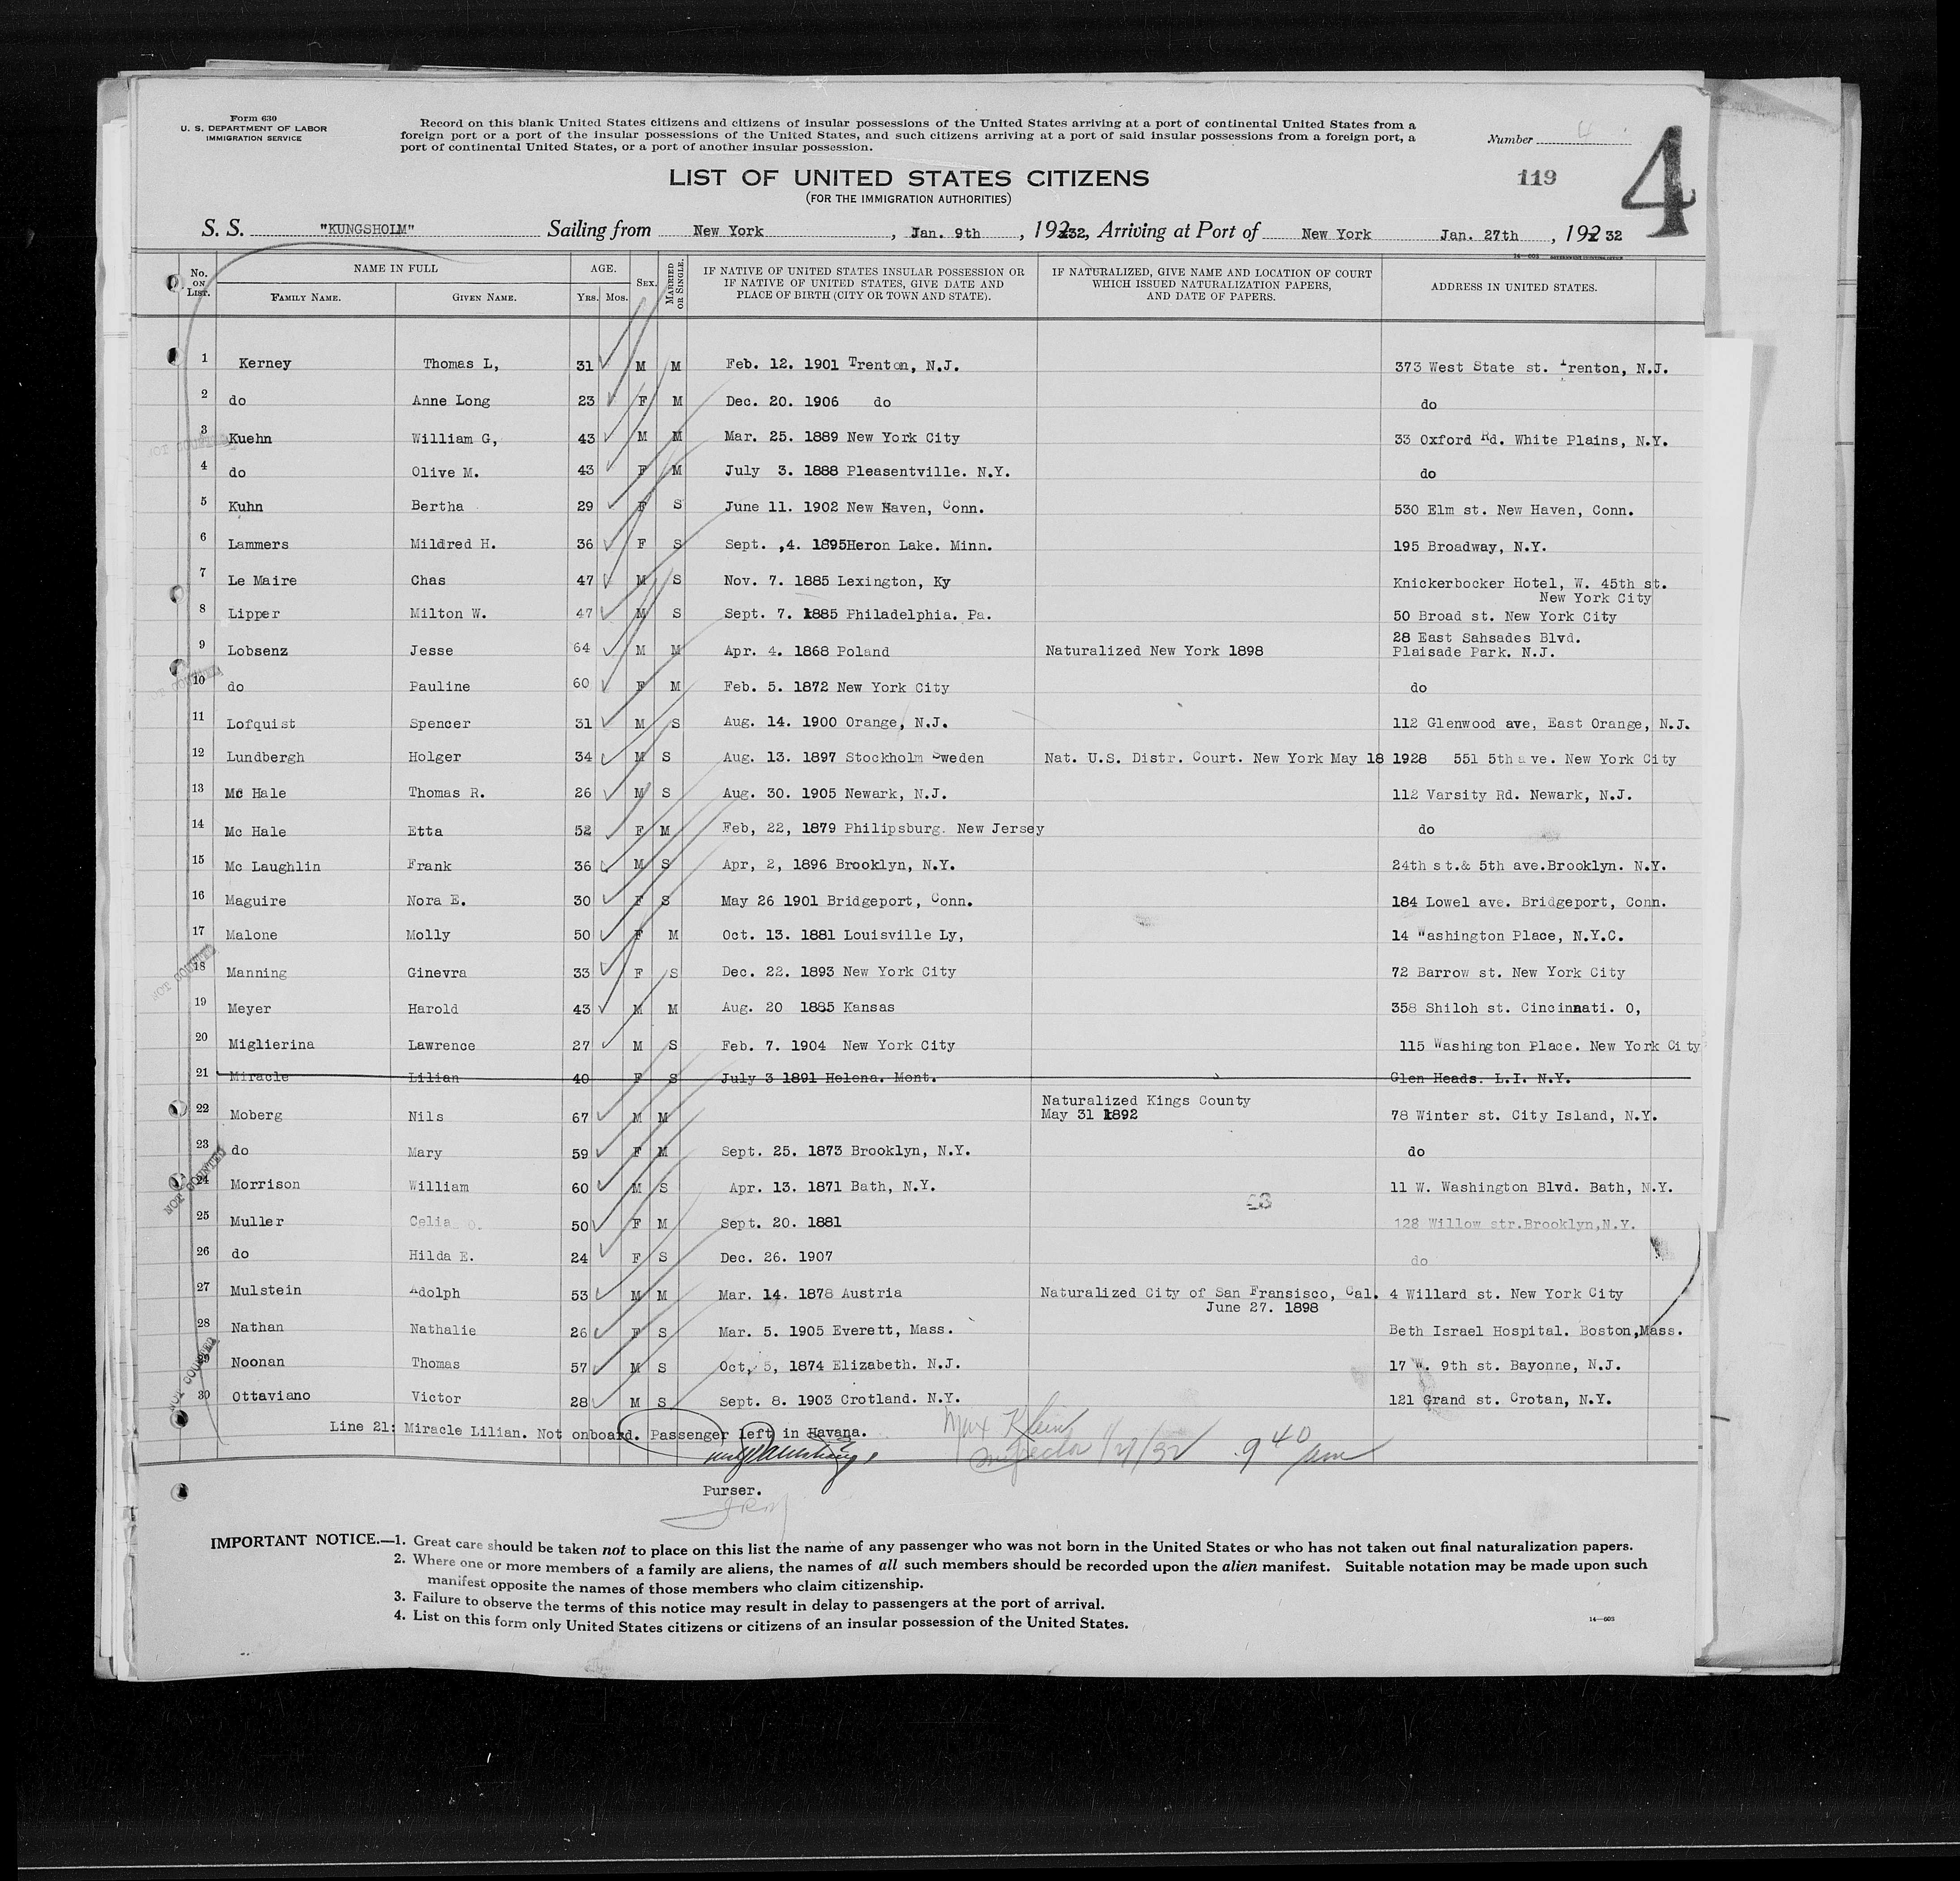 Form 630
U. S. DEPARTMENT OF LABOR
IMMIGRATION SERVICE
Record on this blank United States citizens and citizens of insular possessions of the United States arriving at a port of continental United States from a
foreign port or a port of the insular possessions of the United States, and such citizens arriving at a port of said insular possessions from a foreign port, a
port of continental United States, or a port of another insular possession.
Number 4
4
119
LIST OF UNITED STATES CITIZENS
(FOR THE IMMIGRATION AUTHORITIES)
S. S. "KUNGSHOLM" Sailing from New York, Jan. 9th, 192 32, Arriving at Port of New York Jan. 27th, 192 32
14—603 GOVERNMENT PRINTING OFFICE
No. ON LIST. NAME IN FULL AGE. SEX. MARRIED OR SINGLE. IF NATIVE OF UNITED STATES INSULAR POSSESSION OR IF NATIVE OF UNITED STATES, GIVE DATE AND PLACE OF BIRTH (CITY OR TOWN AND STATE). IF NATURALIZED, GIVE NAME AND LOCATION OF COURT WHICH ISSUED NATURALIZATION PAPERS, AND DATE OF PAPERS. ADDRESS IN UNITED STATES.
FAMILY NAME. GIVEN NAME. Yrs. Mos.
1 Kerney Thomas L, 31 M M Feb. 12. 1901 Trenton, N.J. 373 West State st. Trenton, N.J.
2 do Anne Long 23 F M Dec. 20. 1906 do do
3 Kuehn William G, 43 M M Mar. 25. 1889 New York City 33 Oxford Rd. White Plains, N.Y.
NOT COUNTED
4 do Olive M. 43 F M July 3. 1888 Pleasentville. N.Y. do
5 Kuhn Bertha 29 F S June 11. 1902 New Haven, Conn. 530 Elm st. New Haven, Conn.
6 Lammers Mildred H. 36 F S Sept. ,4. 1895Heron Lake. Minn. 195 Broadway, N.Y.
7 Le Maire Chas 47 M S Nov. 7. 1885 Lexington, Ky Knickerbocker Hotel, W. 45th st.
New York City
8 Lipper Milton W. 47 M S Sept. 7. 1885 Philadelphia. Pa. 50 Broad st. New York City
28 East Sahsades Blvd.
9 Lobsenz Jesse 64 M M Apr. 4. 1868 Poland Naturalized New York 1898 Plaisade Park. N.J.
NOT COUNTED
10 do Pauline 60 F M Feb. 5. 1872 New York City do
11 Lofquist Spencer 31 M S Aug. 14. 1900 Orange, N.J. 112 Glenwood ave, East Orange, N.J.
12 Lundbergh Holger 34 M S Aug. 13. 1897 Stockholm Sweden Nat. U.S. Distr. Court. New York May 18 1928 551 5th ave. New York City
13 Mc Hale Thomas R. 26 M S Aug. 30. 1905 Newark, N.J. 112 Varsity Rd. Newark, N.J.
14 Mc Hale Etta 52 F M Feb, 22, 1879 Philipsburg. New Jersey do
15 Mc Laughlin Frank 36 M S Apr, 2, 1896 Brooklyn, N.Y. 24th st.& 5th ave.Brooklyn. N.Y.
16 Maguire Nora E. 30 F S May 26 1901 Bridgeport, Conn. 184 Lowel ave. Bridgeport, Conn.
17 Malone Molly 50 F M Oct. 13. 1881 Louisville Ly, 14 Washington Place, N.Y.C.
NOT COUNTED
18 Manning Ginevra 33 F S Dec. 22. 1893 New York City 72 Barrow st. New York City
19 Meyer Harold 43 M M Aug. 20 1885 Kansas 358 Shiloh st. Cincinnati. O,
20 Miglierina Lawrence 27 M S Feb. 7. 1904 New York City 115 Washington Place. New York City
21 Miracle Lilian 40 F S July 3 1891 Helena. Mont. Glen Heads. L.I. N.Y.
Naturalized Kings County
22 Moberg Nils 67 M M May 31 1892 78 Winter st. City Island, N.Y.
23 do Mary 59 F M Sept. 25. 1873 Brooklyn, N.Y. do
NOT COUNTED
24 Morrison William 60 M S Apr. 13. 1871 Bath, N.Y. 11 W. Washington Blvd. Bath, N.Y.
25 Muller Celia O. 50 F M Sept. 20. 1881 128 Willow str.Brooklyn,N.Y.
26 do Hilda E. 24 F S Dec. 26. 1907 do
27 Mulstein Adolph 53 M M Mar. 14. 1878 Austria Naturalized City of San Fransisco, Cal. 4 Willard st. New York City
June 27. 1898
28 Nathan Nathalie 26 F S Mar. 5. 1905 Everett, Mass. Beth Israel Hospital. Boston,Mass.
29 Noonan Thomas 57 M S Oct, 5, 1874 Elizabeth. N.J. 17 W. 9th st. Bayonne, N.J.
NOT COUNTED
30 Ottaviano Victor 28 M S Sept. 8. 1903 Crotland. N.Y. 121 Grand st. Crotan, N.Y.
Line 21: Miracle Lilian. Not onboard. Passenger left in Havana.
Max Klein
Inspector 1/27/32 9 40 pm
Purser.
IMPORTANT NOTICE.—1. Great care should be taken not to place on this list the name of any passenger who was not born in the United States or who has not taken out final naturalization papers.
2. Where one or more members of a family are aliens, the names of all such members should be recorded upon the alien manifest. Suitable notation may be made upon such
manifest opposite the names of those members who claim citizenship.
3. Failure to observe the terms of this notice may result in delay to passengers at the port of arrival.
4. List on this form only United States citizens or citizens of an insular possession of the United States.
14—603